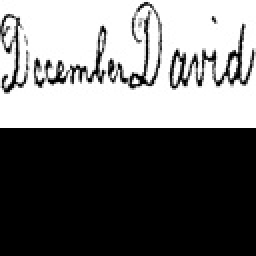 December David